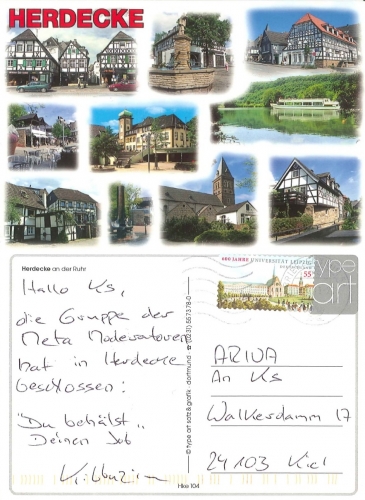 HERDECKE
Herdecke an der Ruhr
Hallo Ks,
die Gruppe der
Meta Moderatoren
hat in Herdecke
beschlossen:
"Du behälst"
Deinen Job
© type art satz & grafik · dortmund · ☎ (0231) 557378-0
Hke 104
600 JAHRE UNIVERSITÄT LEIPZIG
DEUTSCHLAND
55
type
art
ARIVA
An Ks
Walkerdamm 17
24103 Kiel